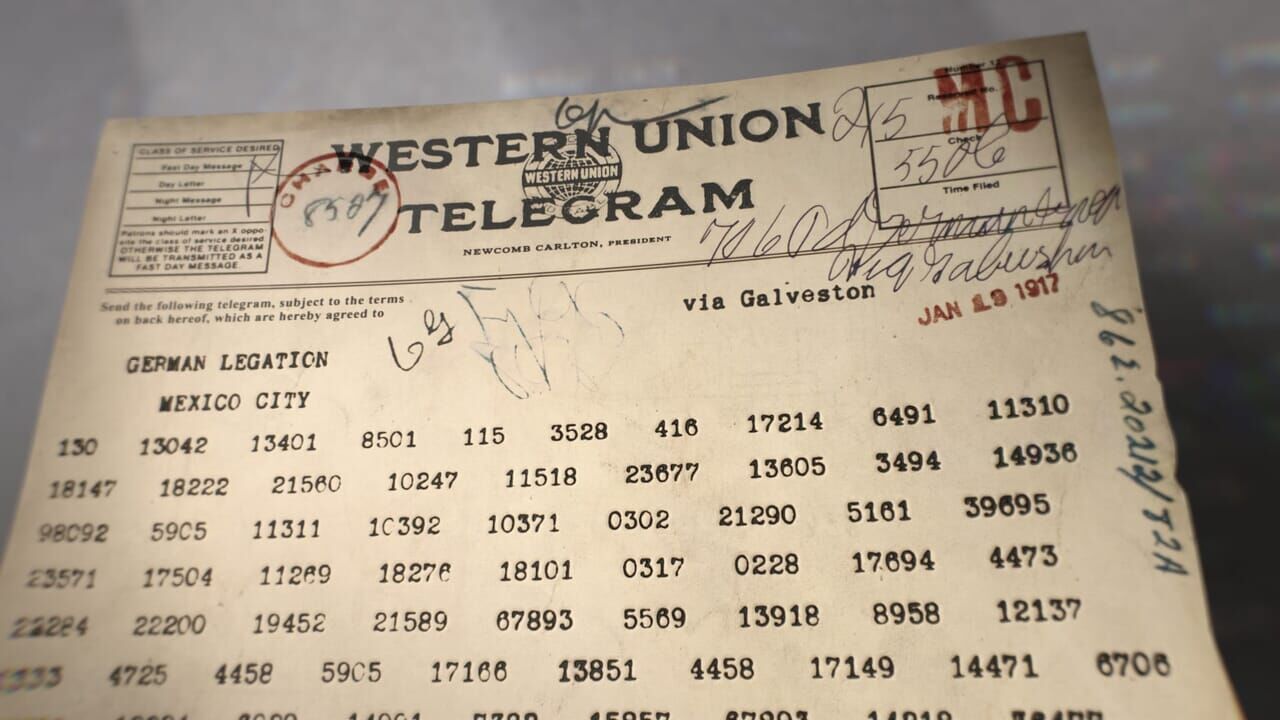 CLASS OF SERVICE DESIRED
Fast Day Message
Day Letter
Night Message
Night Letter
Patrons should mark an X oppo-
site the class of service desired;
OTHERWISE THE TELEGRAM
WILL BE TRANSMITTED AS A
FAST DAY MESSAGE.
CHARGE
8507
WESTERN UNION
WESTERN UNION
TELEGRAM
NEWCOMB CARLTON, PRESIDENT
215
MC
Check
5506
Time Filed
Send the following telegram, subject to the terms
on back hereof, which are hereby agreed to
via Galveston
JAN 19 1917
GERMAN LEGATION
MEXICO CITY
130 13042 13401 8501 115 3528 416 17214 6491 11310
18147 18222 21560 10247 11518 23677 13605 3494 14936
98092 5905 11311 10392 10371 0302 21290 5161 39695
23571 17504 11269 18276 18101 0317 0228 17694 4473
22284 22200 19452 21589 67893 5569 13918 8958 12137
4725 4458 5905 17166 13851 4458 17149 14471 6706
862.20212/82A